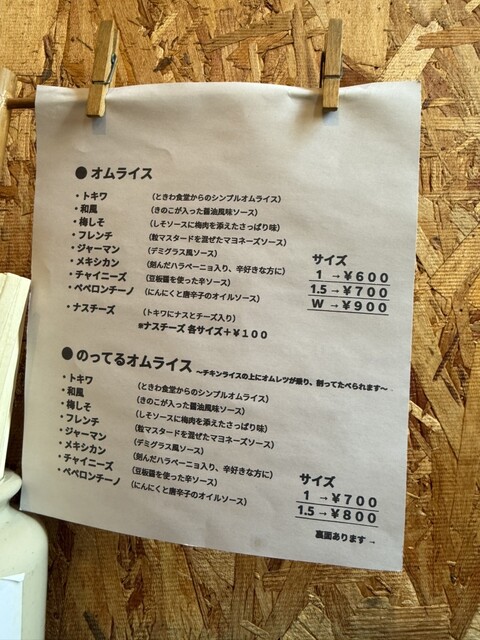 ● オムライス
・トキワ (ときわ食堂からのシンプルオムライス)
・和風 (きのこが入った醤油風味ソース)
・梅しそ (しそソースに梅肉を添えたさっぱり味)
・フレンチ (粒マスタードを混ぜたマヨネーズソース)
・ジャーマン (デミグラス風ソース)
・メキシカン (刻んだハラペーニョ入り、辛好きな方に)
・チャイニーズ (豆板醤を使った辛ソース)
・ペペロンチーノ (にんにくと唐辛子のオイルソース)
サイズ
1 →￥６００
1.5 →￥７００
W →￥９００
・ナスチーズ (トキワにナスとチーズ入り)
※ナスチーズ 各サイズ＋￥１００
● のってるオムライス ～チキンライスの上にオムレツが乗り、割ってたべられます～
・トキワ (ときわ食堂からのシンプルオムライス)
・和風 (きのこが入った醤油風味ソース)
・梅しそ (しそソースに梅肉を添えたさっぱり味)
・フレンチ (粒マスタードを混ぜたマヨネーズソース)
・ジャーマン (デミグラス風ソース)
・メキシカン (刻んだハラペーニョ入り、辛好きな方に)
・チャイニーズ (豆板醤を使った辛ソース)
・ペペロンチーノ (にんにくと唐辛子のオイルソース)
サイズ
1 →￥７００
1.5 →￥８００
裏面あります →